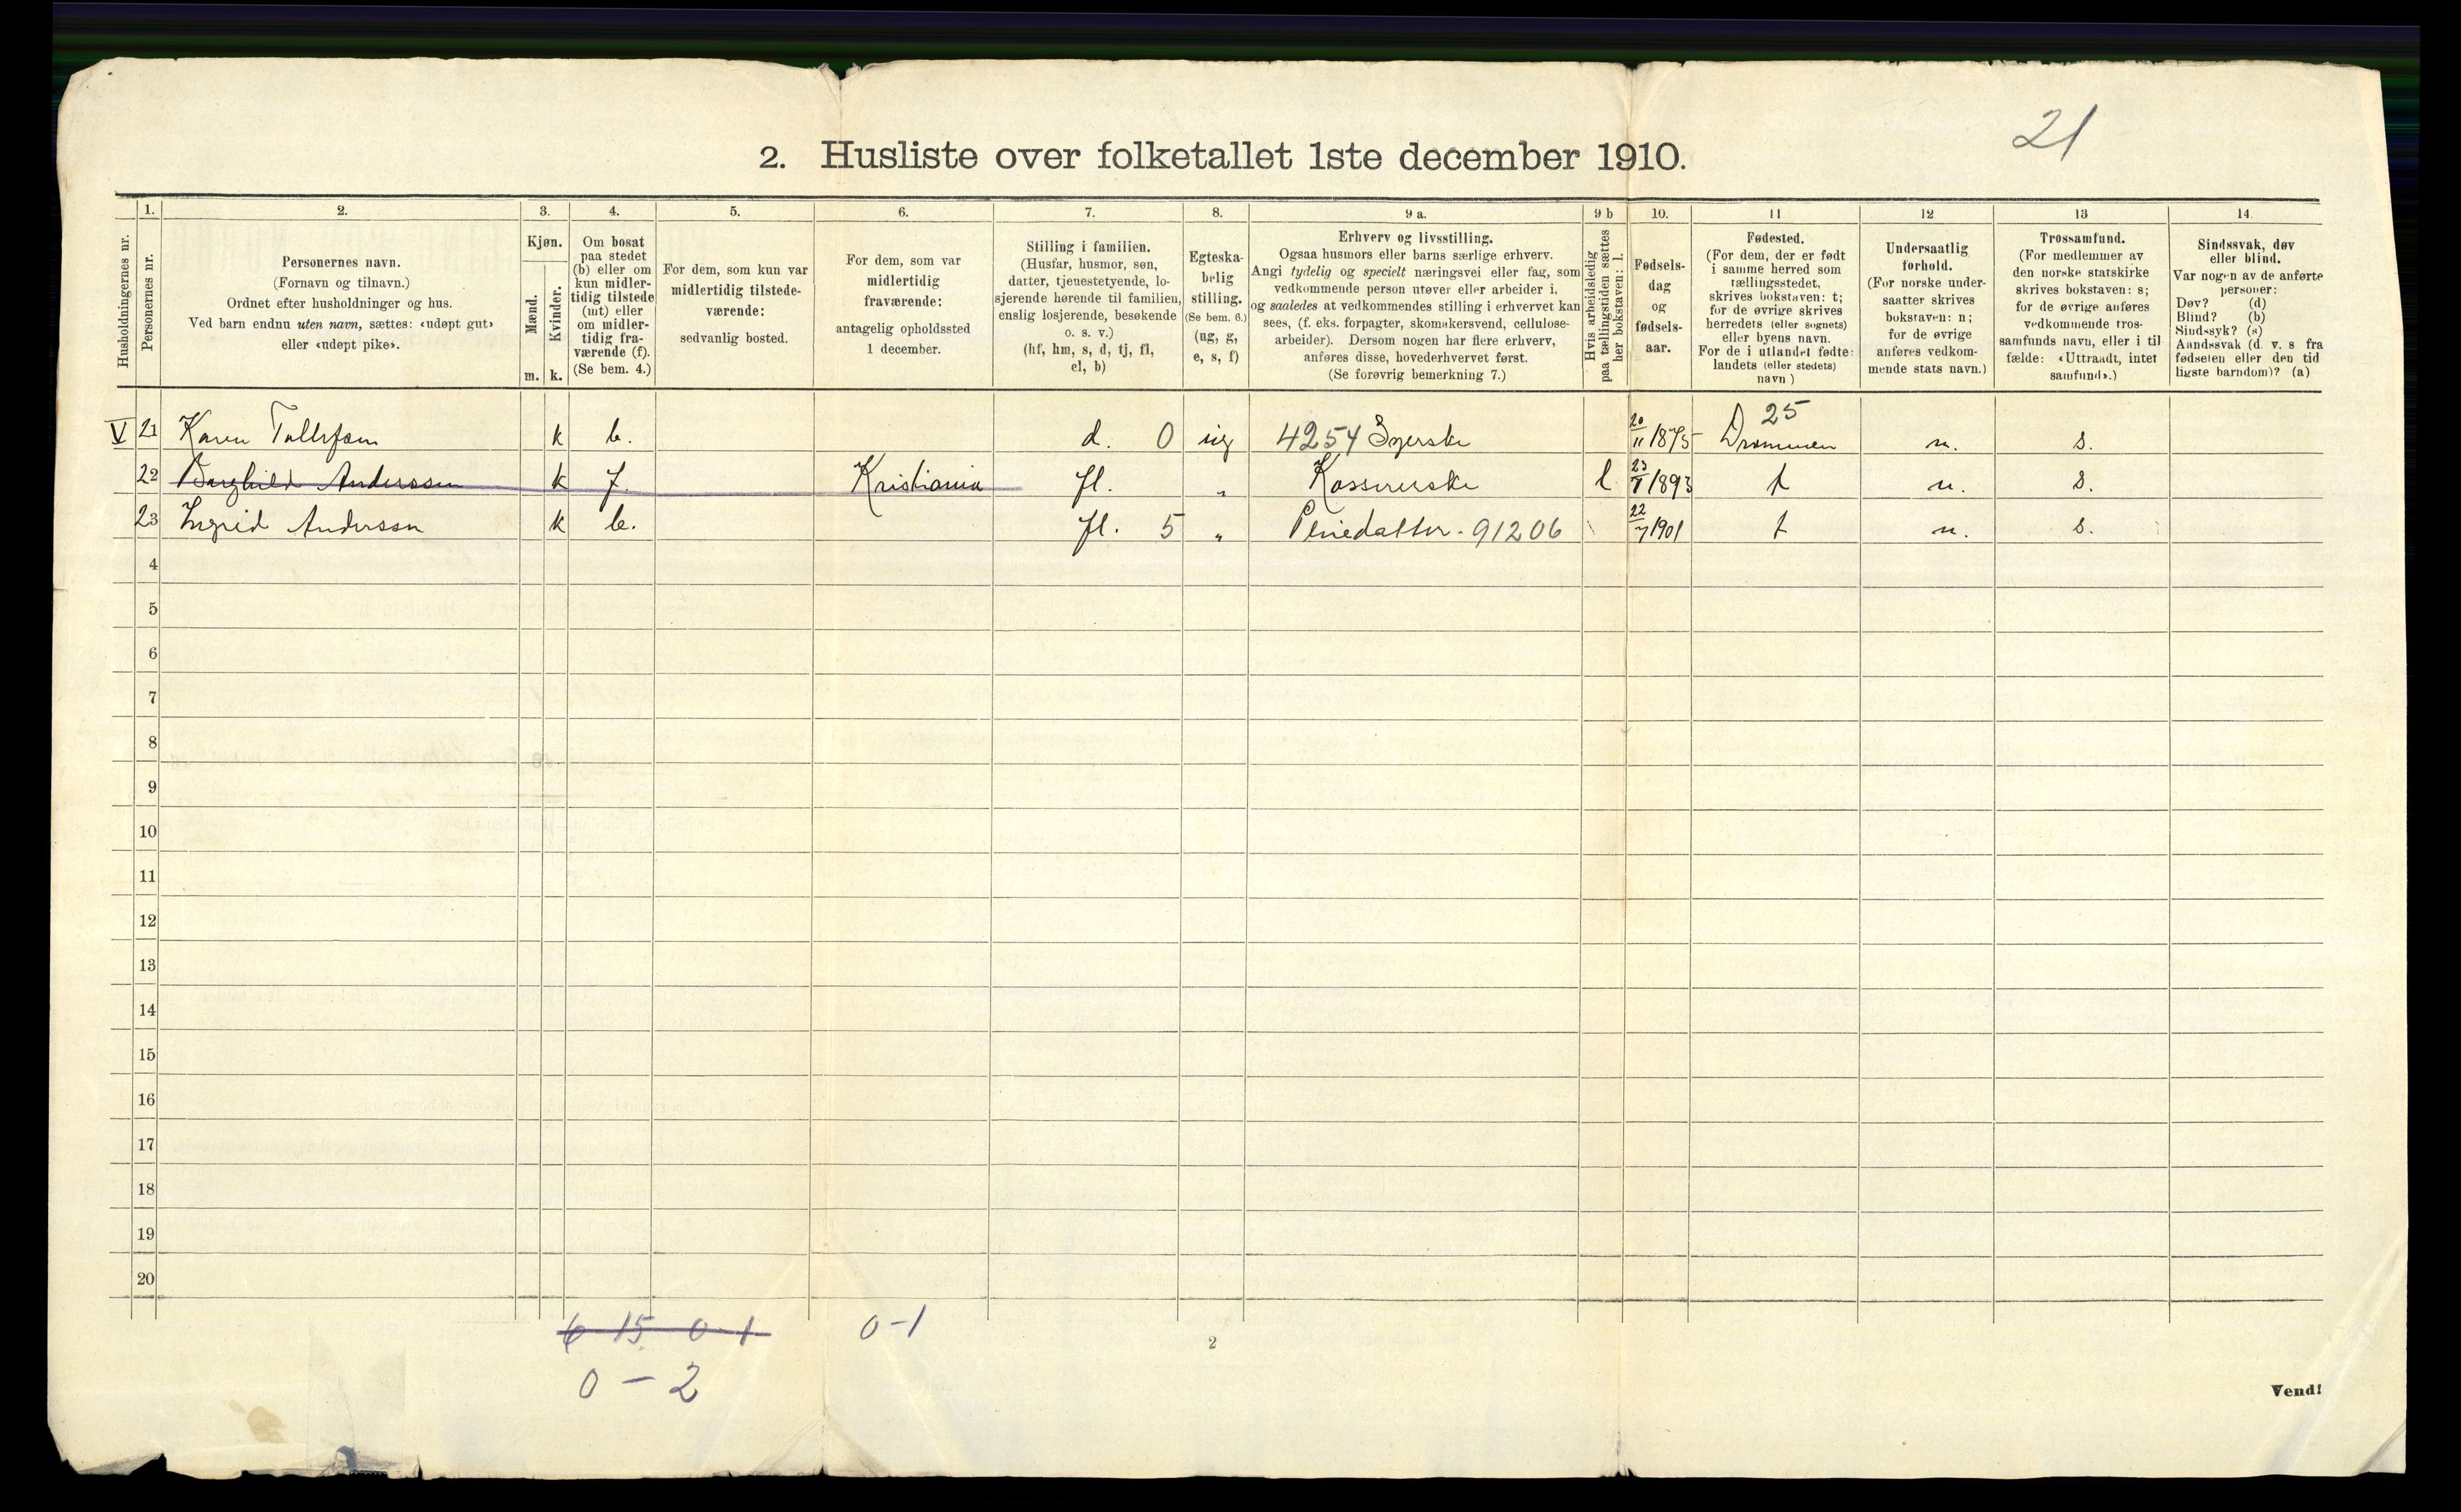 21
2. Husliste over folketallet 1ste december 1910.
Husholdningernes nr.
1.
Personernes nr.
2.
Personernes navn.
(Fornavn og tilnavn.)
Ordnet efter husholdninger og hus.
Ved barn endnu uten navn, sættes: «udøpt gut»
eller «udøpt pike».
3.
Kjøn.
Mænd.
Kvinder.
m. k.
4.
Om bosat
paa stedet
(b) eller om
kun midler-
tidig tilstede
(mt) eller
om midler-
tidig fra-
værende (f).
(Se bem. 4.)
5.
For dem, som kun var
midlertidig tilstede-
værende:
sedvanlig bosted.
6.
For dem, som var
midlertidig
fraværende:
antagelig opholdssted
1 december.
7.
Stilling i familien.
(Husfar, husmor, søn,
datter, tjenestetyende, lo-
sjerende hørende til familien,
enslig losjerende, besøkende
o. s. v.)
(hf, hm, s, d, tj, fl,
el, b)
8.
Egteska-
belig
stilling.
(Se bem. 6.)
(ug, g,
e, s, f)
9 a.
Erhverv og livsstilling.
Ogsaa husmors eller barns særlige erhverv.
Angi tydelig og specielt næringsvei eller fag, som
vedkommende person utøver eller arbeider i,
og saaledes at vedkommendes stilling i erhvervet kan
sees, (f. eks. forpagter, skomakersvend, cellulose-
arbeider). Dersom nogen har flere erhverv,
anføres disse, hovederhvervet først.
(Se forøvrig bemerkning 7.)
9 b
Hvis arbeidsledig
paa tællingstiden sættes
her bokstaven: l.
10.
Fødsels-
dag
og
fødsels-
aar.
11
Fødested.
(For dem, der er født
i samme herred som
tællingsstedet,
skrives bokstaven: t;
for de øvrige skrives
herredets (eller sognets)
eller byens navn.
For de i utlandet fødte:
landets (eller stedets)
navn )
12
Undersaatlig
forhold.
(For norske under-
saatter skrives
bokstaven: n;
for de øvrige
anføres vedkom-
mende stats navn.)
13
Trossamfund.
(For medlemmer av
den norske statskirke
skrives bokstaven: s;
for de øvrige anføres
vedkommende tros-
samfunds navn, eller i til
fælde: «Uttraadt, intet
samfund».)
14.
Sindssvak, døv
eller blind.
Var nogen av de anførte
personer:
Døv? (d)
Blind? (b)
Sindssyk? (s)
Aandssvak (d. v. s fra
fødselen eller den tid
ligste barndom)? (a)
V 21 Karen Tollefsen k b. d. 0 ug 4254 Syerske 20/11 1875 Drammen 25 n. s.
22 Borghild Anderssen k f. Kristiania fl. " Kassererske l 23/1 1893 t n. s.
23 Ingrid Anderssen k b. fl. 5 " Pleiedatter. 91206 22/7 1901 t n. s.
4
5
6
7
8
9
10
11
12
13
14
15
16
17
18
19
20
6 15 0 1 0-1
2
0 - 2
Vend!